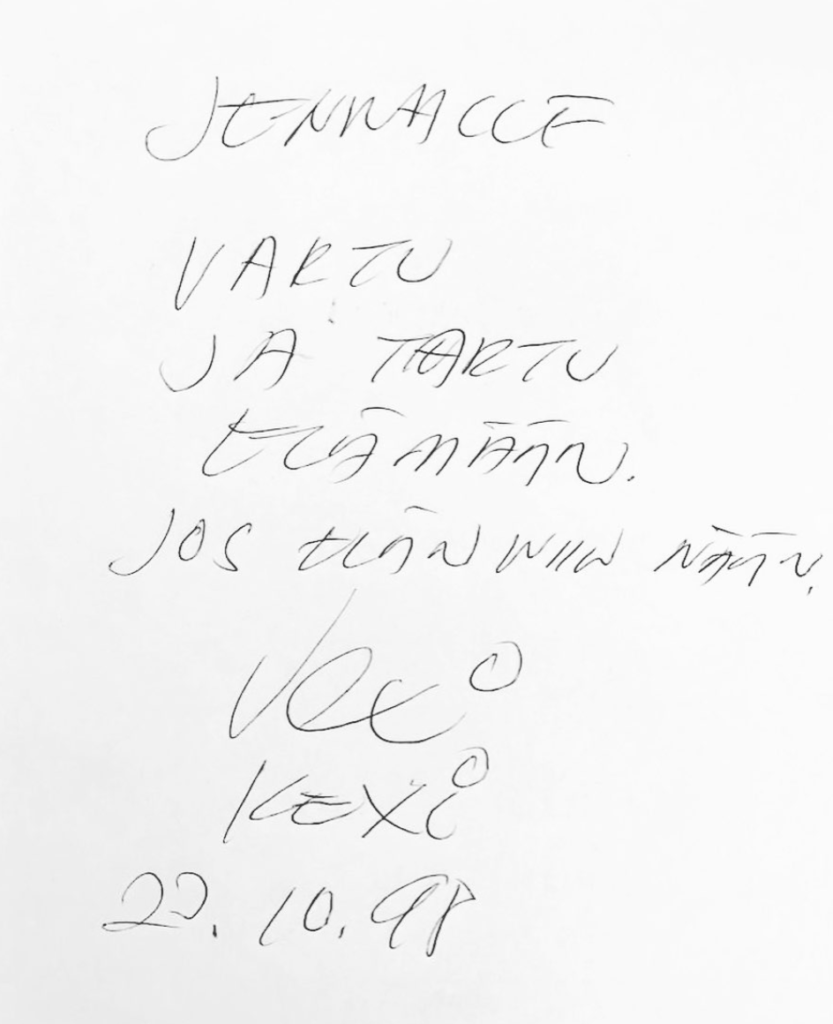 JENNALLE
VARTU
JA TARTU
ELÄMÄÄN.
JOS ELÄN NIIN NÄÄN.
Vexi
KEXi
22.10.98